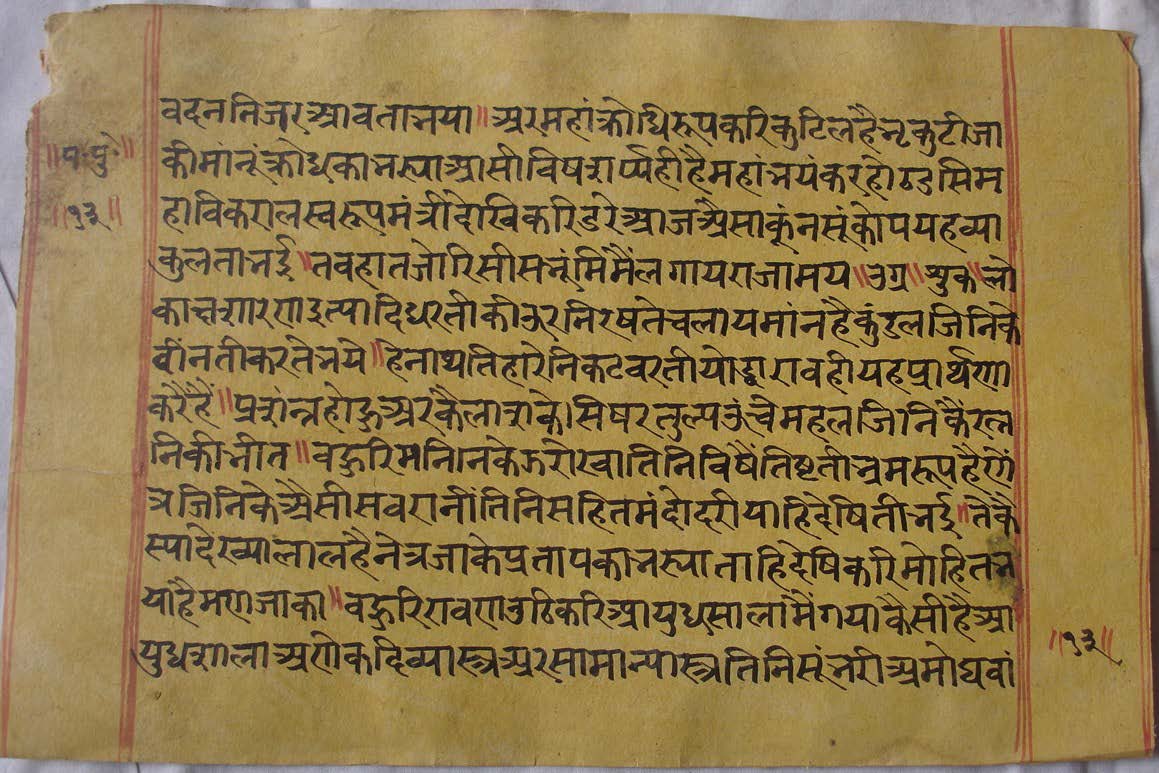 वदन निजर आवता भया ॥ अर महां क्रोधि रूप करि कुटिल है भृकुटी जा
॥ प॰ पु॰ ॥
की मांनूं क्रोध का भस्या आसी विष
है महां भयंकर होठ डसि म
॥ १३ ॥
हा विकराल स्वरूप मंत्री देखि करि डरे आज असा कूंन सूं कोप यह व्या
कुलता भई ॥ तव हात जोरि सीस भूंमि मैं लगाय राजा मय ॥ उग्र ॥ शुक ॥ लो
इत्यादि धरती की उर निरषते चलायमांन है कुंडल जिनि के
वीनती करते भये ॥ हे नाथ तिहारे निकट वरती योद्धा रावही यह प्रार्थणा
करै हैं ॥ प्रशंन्न होहु अर कैलाश के सिषर तुल्य ऊंचे महल जिनि कै रत्न
निकी भीत ॥ वहुरि मनिनि के झरोखा तिनि विषैं तिष्टती भ्रम रूप है णे
त्र जिनि के असी सव रानीं तिनि सहित मंदोदरी याहि देषिती भई ॥
देख्या लाल है नेत्र जाके प्रताप का भस्या ताहि देषि करि मोहित भ
या है मण जाका ॥ वहुरि रावण उठि करि आयुध साला मैं गया कैसी है आ
युध शाला अणेक दिव्यास्त्र अर सामान्यास्त्र तिनि सूं भरी अमोघ वां
॥ १३ ॥